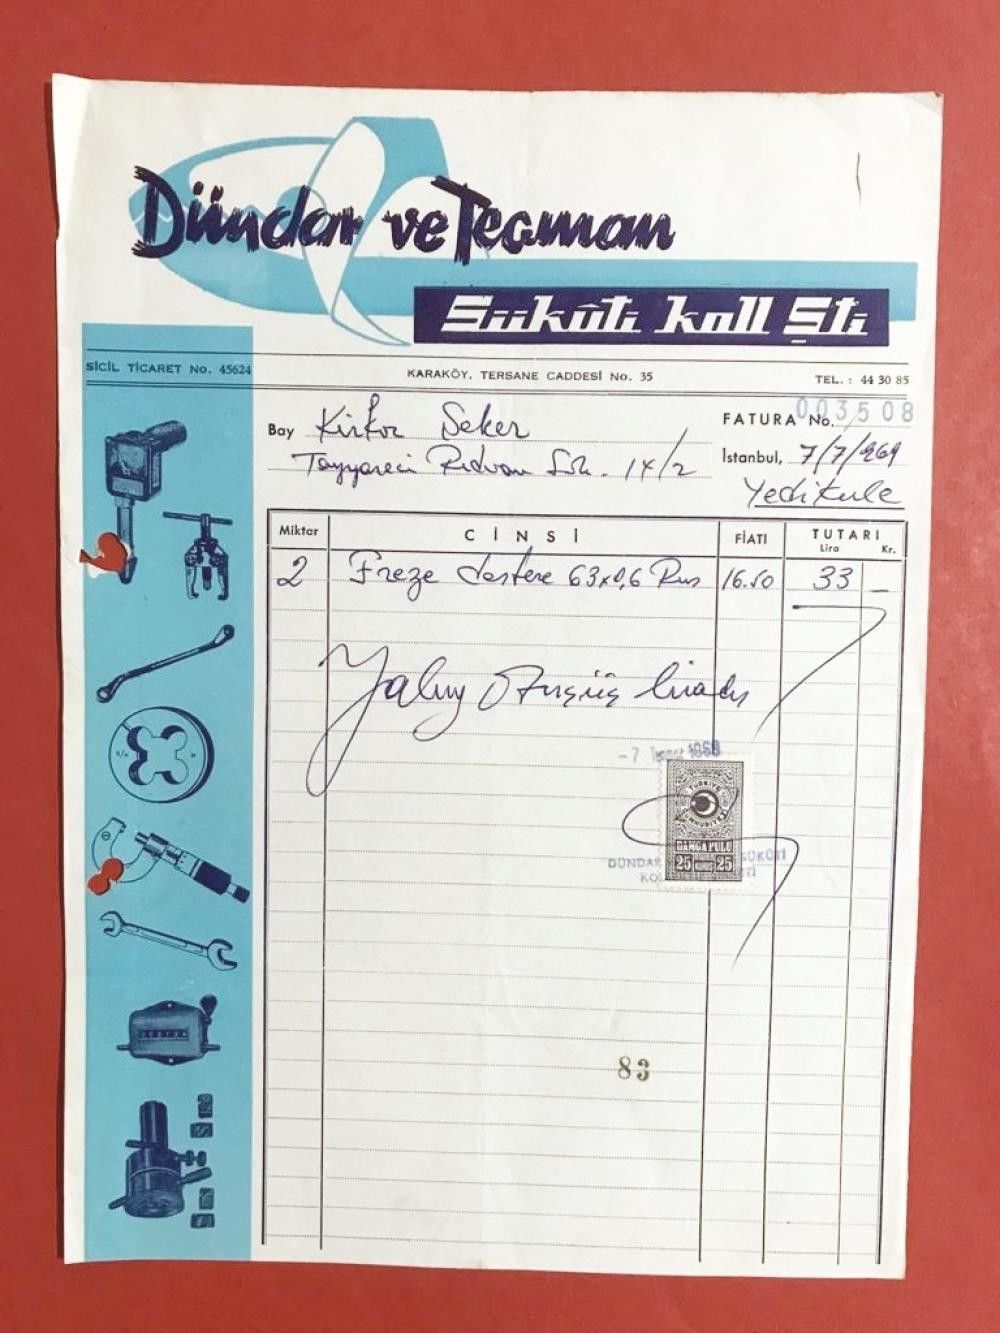 Dündar ve Teaman
Sükûti Koll Şti
SİCİL TİCARET No. 45624
KARAKÖY, TERSANE CADDESİ No. 35
TEL. : 44 30 85
Bay Kirkor Şeker
FATURA No. 003508
Tayyareci Rıdvan Sok. 14/2
İstanbul, 7/7/969
Yedikule
Miktar CİNSİ FİATI TUTARI
Lira Kr.
2 Freze testere 63x0,6 Rus 16.50 33 —
Yalnız Otuzüç liradır
-7 1969
TÜRKİYE
CUMHURİYETİ
DAMGA PULU
25 KURUŞ 25
DÜNDAR SÜKÛTİ
83